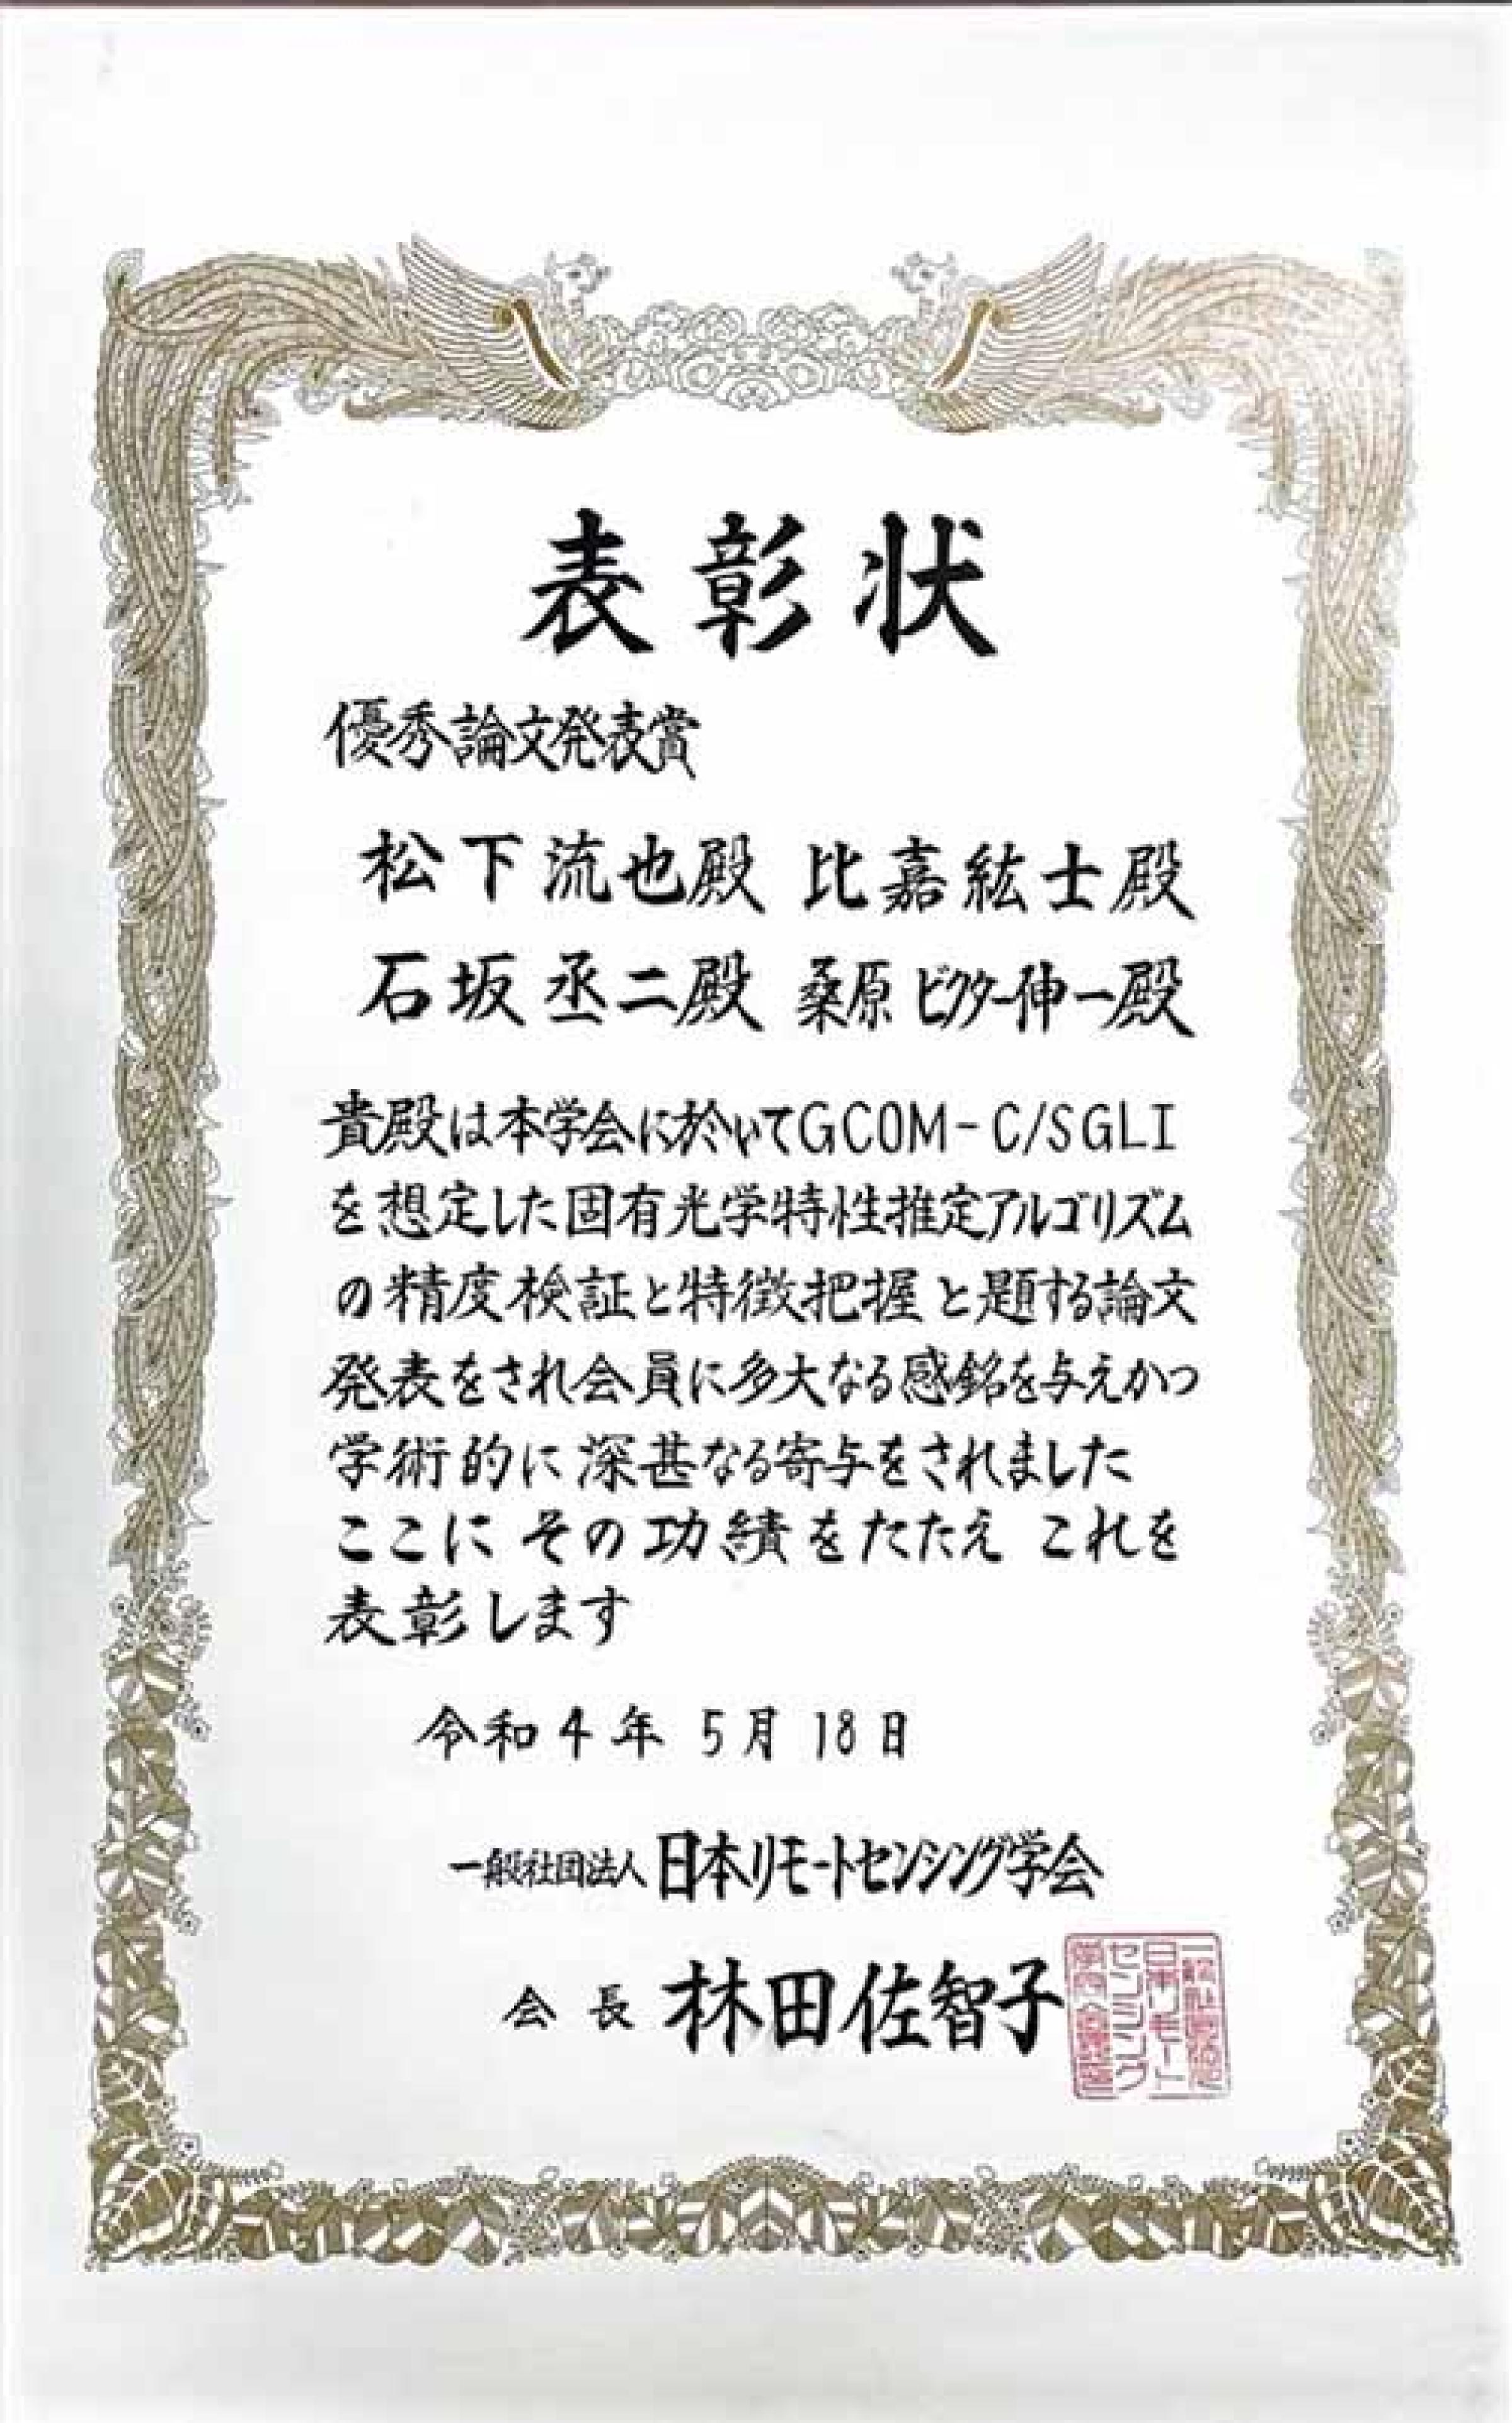 表彰状
優秀論文発表賞
松下流也殿 比嘉紘士殿
石坂丞二殿 桑原ビクター伸一殿
貴殿は本学会に於いてGCOM-C/SGLI
を想定した固有光学特性推定アルゴリズム
の精度検証と特徴把握と題する論文
発表をされ会員に多大なる感銘を与えかつ
学術的に深甚なる寄与をされました
ここに その功績をたたえ これを
表彰します
令和4年 5月18日
一般社団法人 日本リモートセンシング学会
会長 林田佐智子
一般社団法人
日本リモート
センシング
学会